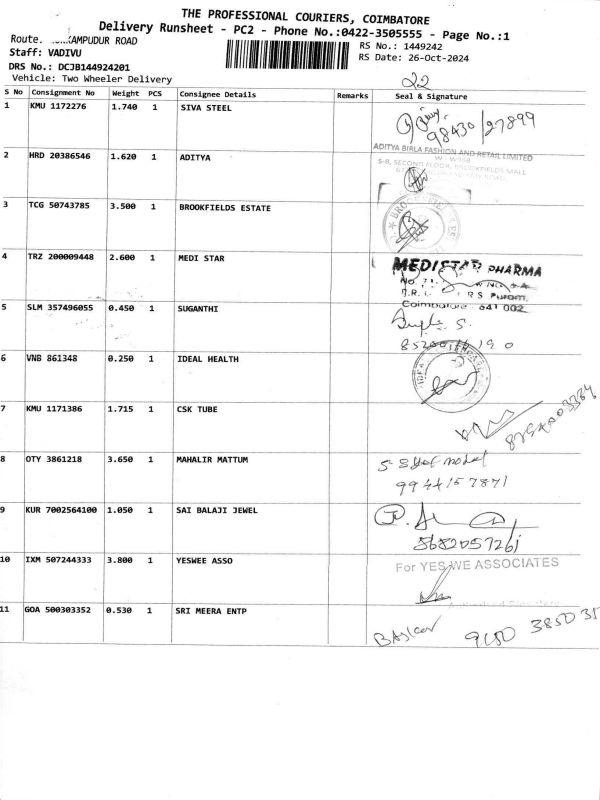 THE PROFESSIONAL COURIERS, COIMBATORE
Delivery Runsheet - PC2 - Phone No.:0422-3505555 - Page No.:1
Route. KAMPUDUR ROAD
RS No.: 1449242
Staff: VADIVU
RS Date: 26-Oct-2024
DRS No.: DCJB144924201
Vehicle: Two Wheeler Delivery
22
S No Consignment No Weight PCS Consignee Details Remarks Seal & Signature
1 KMU 1172276 1.740 1 SIVA STEEL
98430/27899
2 HRD 20386546 1.620 1 ADITYA
ADITYA BIRLA FASHION AND RETAIL LIMITED
S-8, SECOND FLOOR, BROOKFIELDS MALL
3 TCG 50743785 3.500 1 BROOKFIELDS ESTATE
BROOKFIELDS
4 TRZ 200009448 2.600 1 MEDI STAR
MEDISTAR PHARMA
No.
Puram,
Coimbatore - 641 002
5 SLM 357496055 0.450 1 SUGANTHI
S.
6 VNB 861348 0.250 1 IDEAL HEALTH
7 KMU 1171386 1.715 1 CSK TUBE
8 OTY 3861218 3.650 1 MAHALIR MATTUM
9944157871
9 KUR 7002564100 1.050 1 SAI BALAJI JEWEL
10 IXM 507244333 3.800 1 YESWEE ASSO
For YES WE ASSOCIATES
11 GOA 500303352 0.530 1 SRI MEERA ENTP